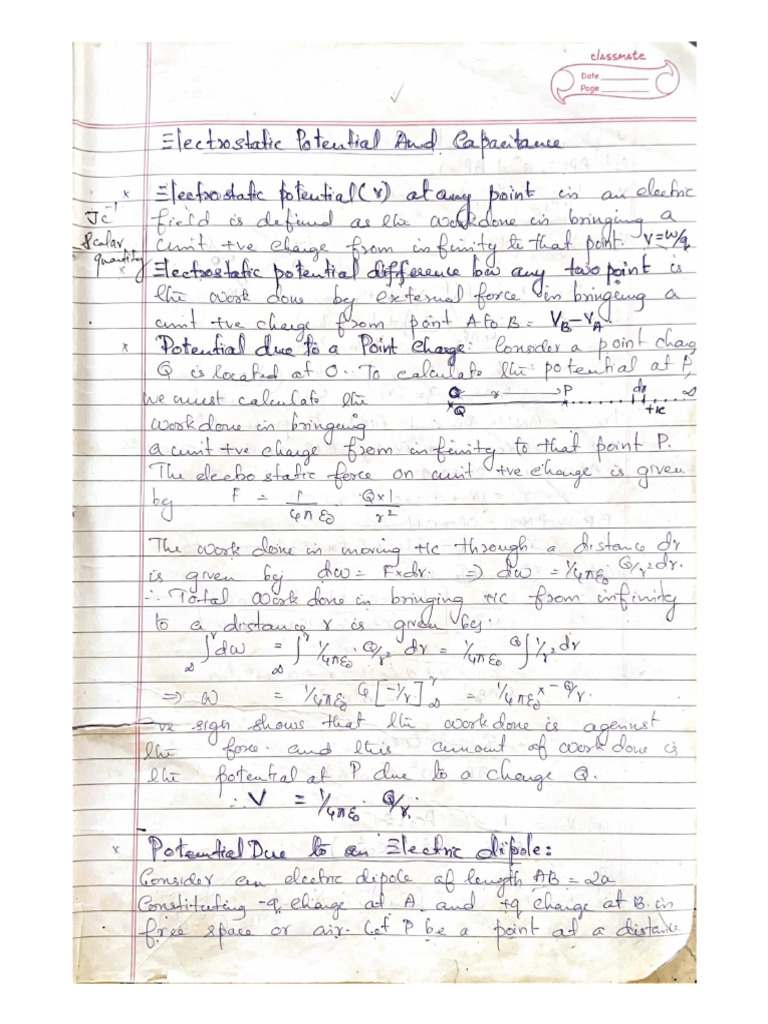 classmate
Date
Page
Electrostatic Potential And Capacitance
× Electrostatic potential (V) at any point in an electric
JC⁻¹ field is defined as the workdone in bringing a
Scalar quantity unit +ve charge from infinity to that point. V=W/q
× Electrostatic potential difference b/w any two point is
the work done by external force in bringing a
unit +ve charge from point A to B = V_B - V_A.
× Potential due to a Point charge: Consider a point charg
Q is located at O. To calculate the potential at P,
we must calculate the
O r P dr ∞
+Q +1C
workdone in bringing
a unit +ve charge from infinity to that point P.
The electrostatic force on unit +ve charge is given
by F = 1/4πε₀ · Q×1/r²
The work done in moving +1C through a distance dr
is given by dw = F×dr. ⇒ dw = 1/4πε₀ · Q/r² dr.
∴ Total work done in bringing +1C from infinity
to a distance r is given by.
∞∫ʳ dw = ∞∫ʳ 1/4πε₀ · Q/r² dr = 1/4πε₀ Q ∫ 1/r² dr
⇒ w = 1/4πε₀ Q [-1/r]^r_∞ = 1/4πε₀ × -Q/r.
-ve sign shows that the workdone is against
the force. and this amount of workdone is
the potential at P due to a charge Q.
∴ V = 1/4πε₀ · Q/r.
× Potential Due to an Electric dipole:
Consider an electric dipole of length AB = 2a
Constituting -q charge at A and +q charge at B. in
free space or air. Let P be a point at a distance